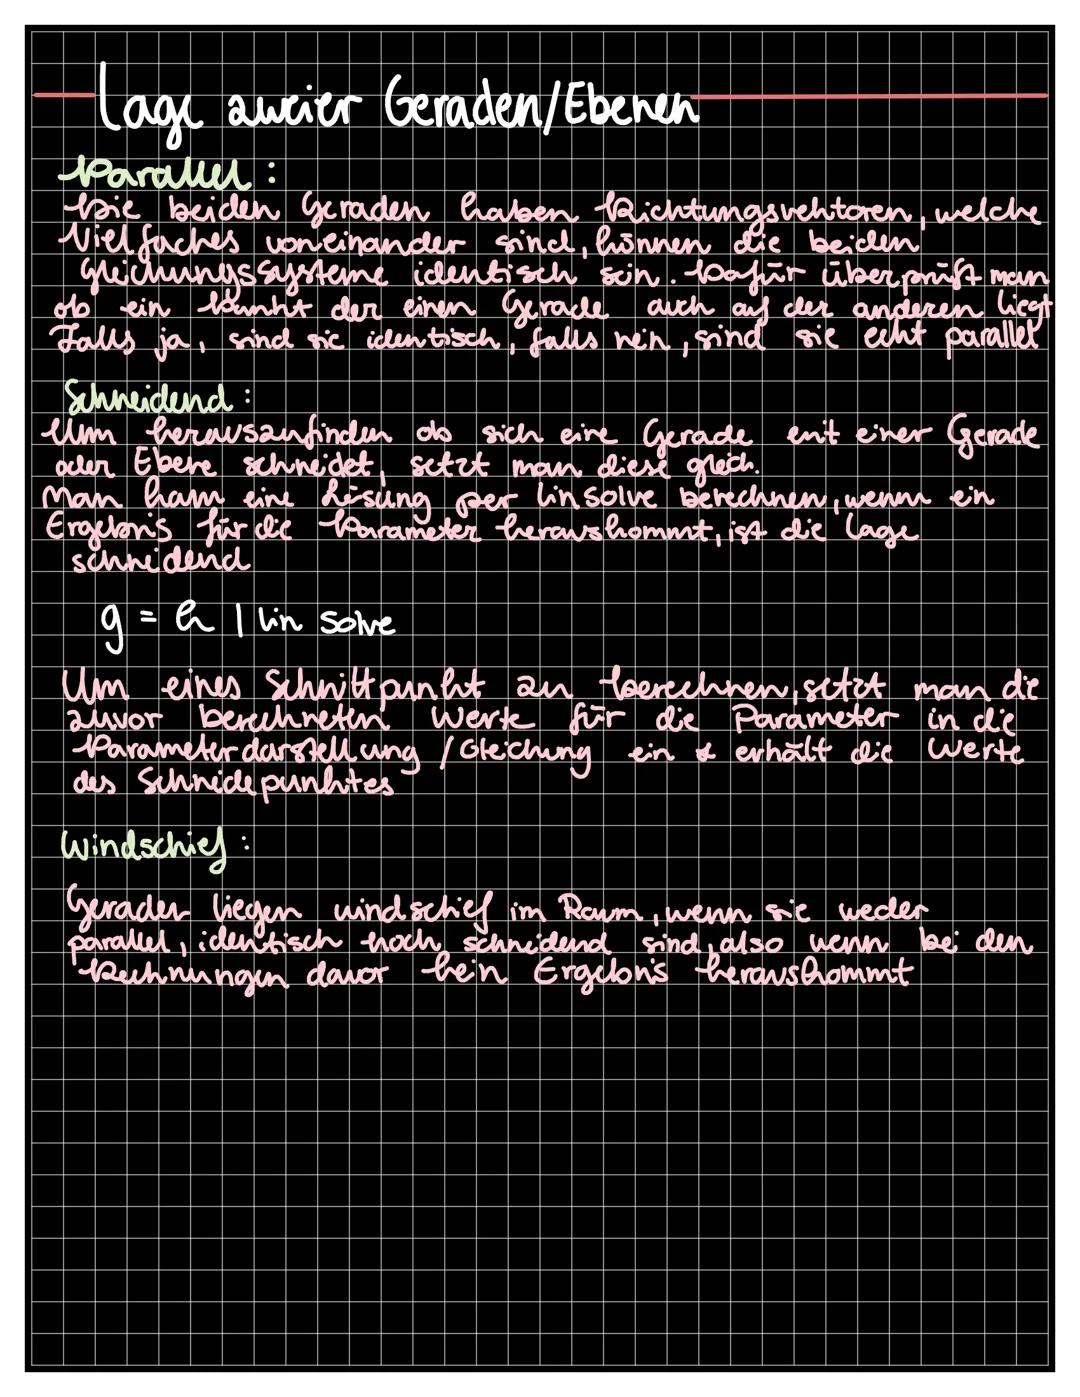 Lage zweier Geraden/Ebenen
Parallel:
Die beiden Geraden haben Richtungsvektoren, welche
Vielfaches voneinander sind, können die beiden
Gleichungssysteme identisch sein. Dafür überprüft man
ob ein Punkt der einen Gerade auch auf der anderen liegt
Falls ja, sind sie identisch, falls nein, sind sie echt parallel
Schneidend:
Um herauszufinden ob sich eine Gerade mit einer Gerade
oder Ebene schneidet, setzt man diese gleich.
Man kann eine Lösung per linsolve berechnen, wenn ein
Ergebnis für die Parameter herauskommt, ist die Lage
schneidend
g = h | lin solve
Um eines Schnittpunkt zu berechnen, setzt man die
zuvor berechneten Werte für die Parameter in die
Parameterdarstellung / Gleichung ein & erhält die Werte
des Schneidepunktes
Windschief:
Geraden liegen windschief im Raum, wenn sie weder
parallel, identisch noch schneidend sind, also wenn bei den
Rechnungen davor kein Ergebnis herauskommt